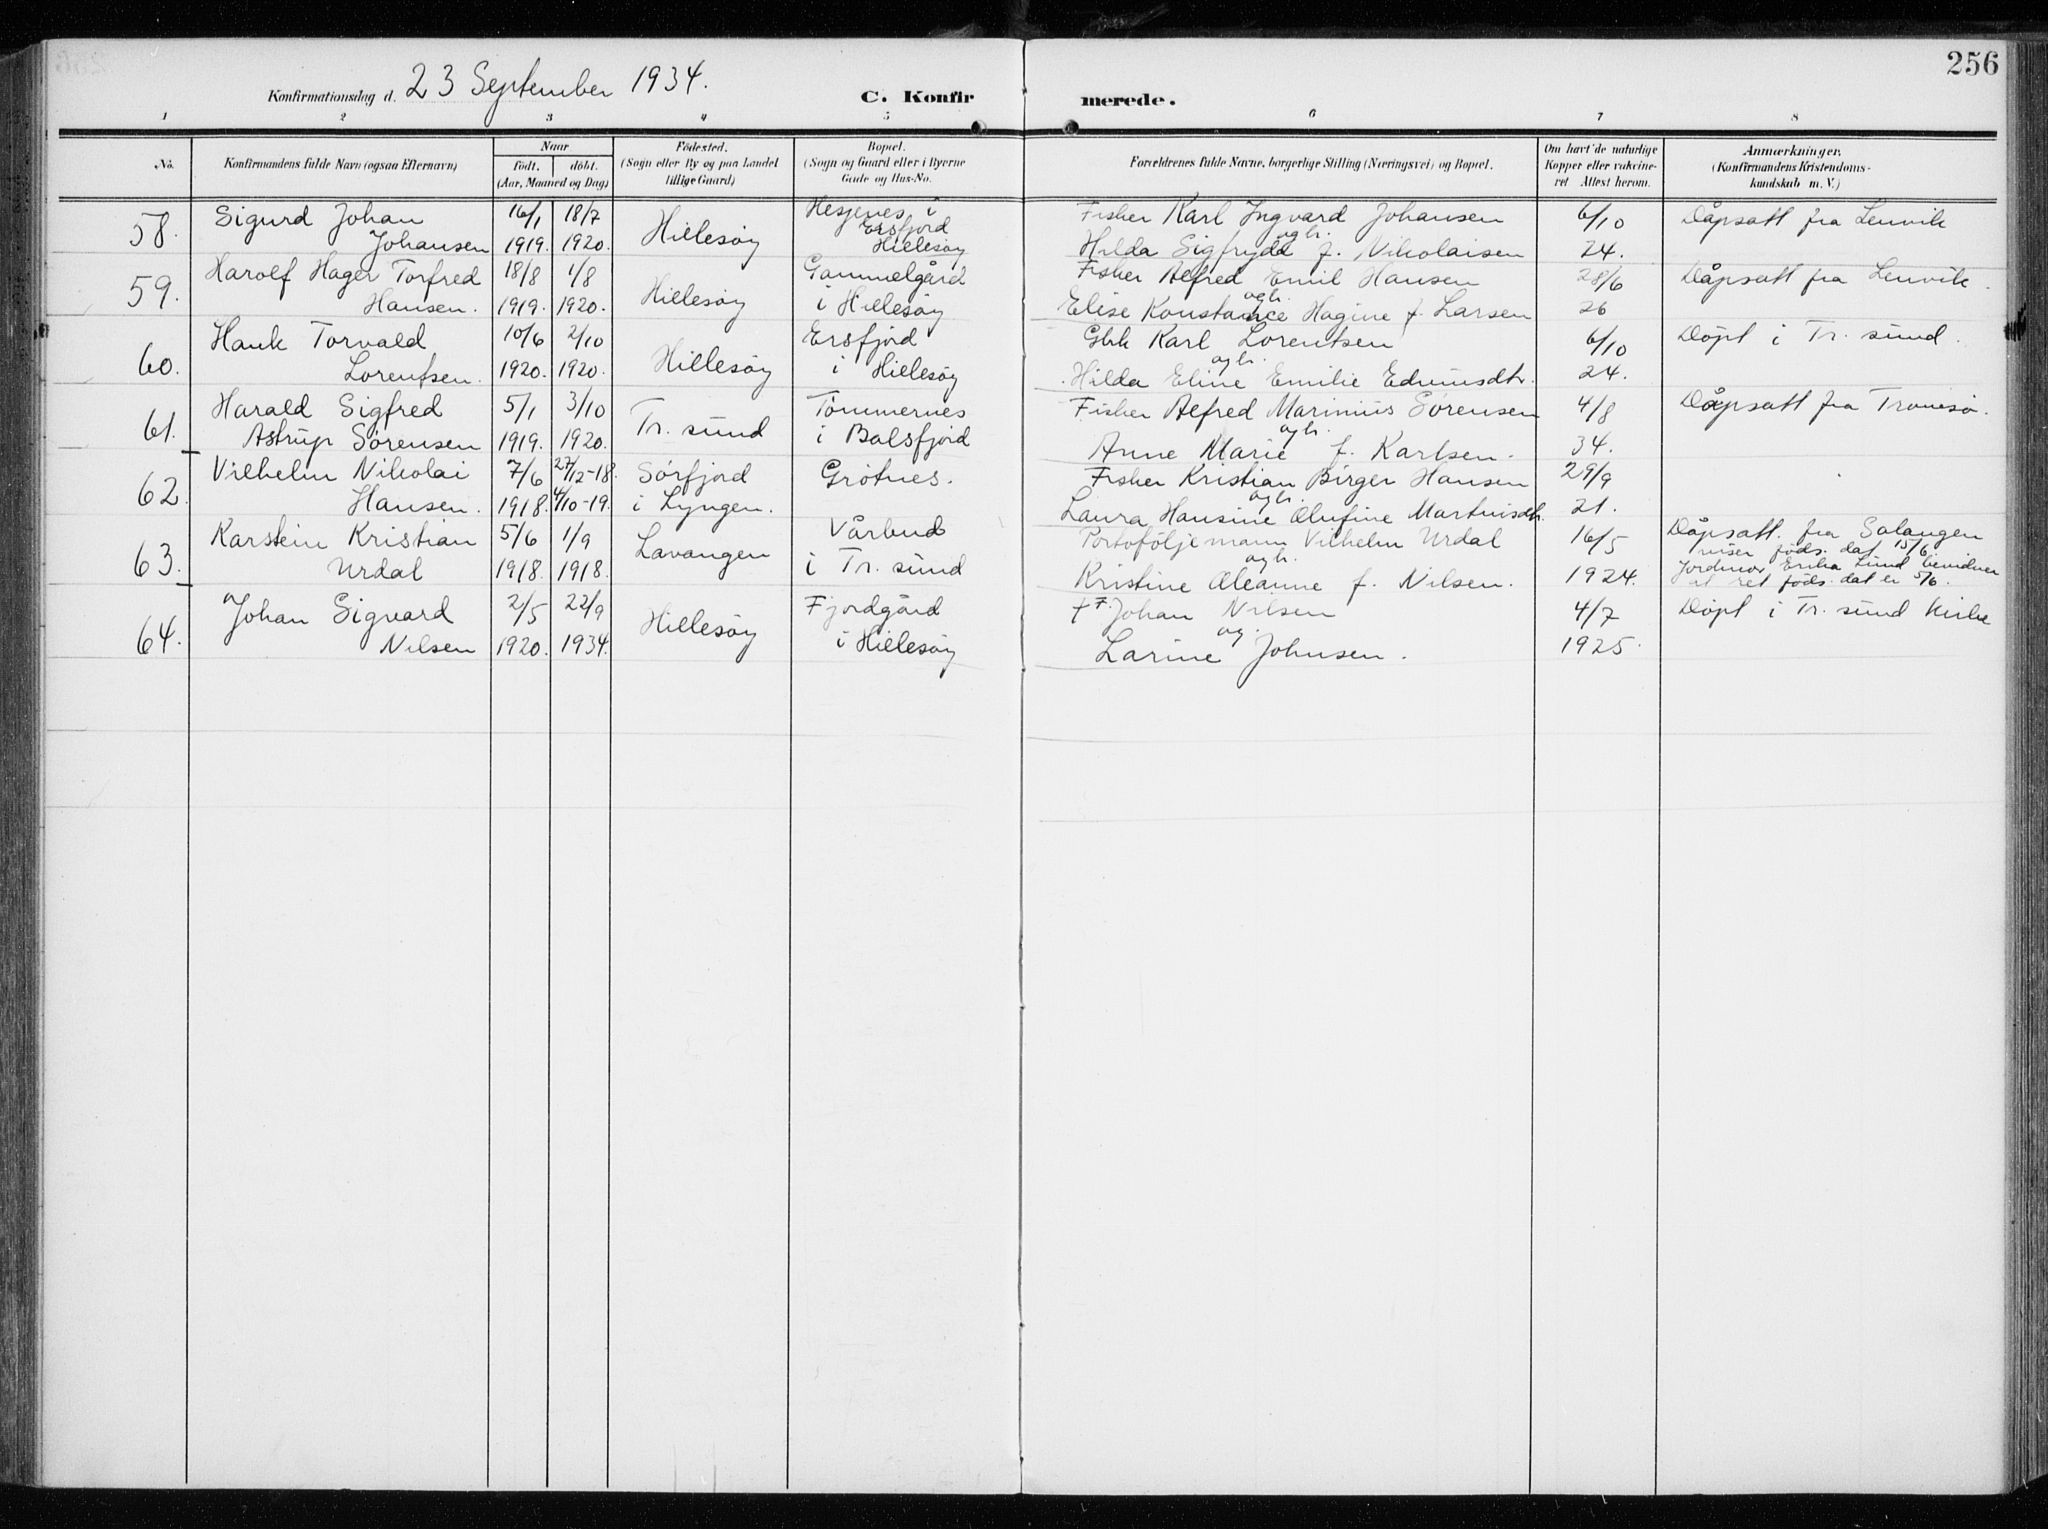 256
Konfirmationsdag d. 23 September 1934.
C. Konfirmerede.
1 2 3 4 5 6 7 8
No. Konfirmandens fulde Navn (ogsaa Efternavn) Naar født. døbt. (Aar, Maaned og Dag) Fødested. (Sogn eller By og paa Landet tillige Gaard) Bopæl. (Sogn og Gaard eller i Byerne Gade og Hus-No. Forældrenes fulde Navne, borgerlige Stilling (Næringsvei) og Bopæl. Om havt de naturlige Kopper eller vakcineret Attest herom. Anmærkninger, (Konfirmandens Kristendomskundskab m. V.)
58. Sigurd Johan Johansen 16/1 1919. 18/7 1920. Hillesøy Hesjenes i Ersfjord Hillesøy Fisker Karl Ingvard Johansen ogh. Hilda Sigfrydd f. Nikolaisen 6/10 24. Dåpsatt fra Lenvik
59. Harolf Hager Torfred Hansen. 18/8 1919. 1/8 1920. Hillesøy Gammelgård i Hillesøy Fisker Alfred Emil Hansen ogh. Elise Konstance Hagine f. Larsen 28/6 26 Dåpsatt fra Lenvik.
60. Hauk Torvald Lorentsen. 10/6 1920. 2/10 1920. Hillesøy Ersfjord i Hillesøy Gbk Karl Lorentsen ogh. Hilda Eline Emilie Edvinsdtr. 6/10 24. Døpt i Tr. sund.
61. Harald Sigfred Astrup Sørensen 5/1 1919. 3/10 1920. Tr. sund Tømmernes i Balsfjord Fisker Alfred Marinius Sørensen ogh. Anne Marie f. Karlsen. 4/8 34. Dåpsatt fra Tromsø.
62. Vilhelm Nikolai Hansen. 7/6 1918. 27/12-18. 4/10-19. Sørfjord i Lyngen. Grøtnes. Fisker Kristian Birger Hansen ogh. Laura Hansine Olufine Martinsdtr. 29/9 21.
63. Karstein Kristian Urdal 5/6 1918. 1/9 1918. Lavangen Vårbud i Tr. sund Portefølje mann Vilhelm Urdal ogh. Kristine Oleanne f. Nilsen. 16/5 1924. Dåpsatt. fra Salangen viser føds. dat 15/6. Jordmor Erika Lund bevidner at ret føds. dat er 5/6.
64. Johan Sigvard Nilsen 2/5 1920. 22/9 1934. Hillesøy Fjordgård i Hillesøy † F. Johan Nilsen og. Larine Johnsen. 4/7 1925. Døpt i Tr. sund Kirke